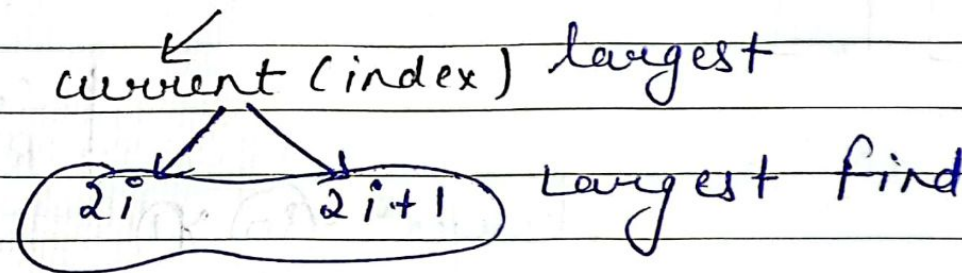 current (index) largest
2i 2i+1 Largest find